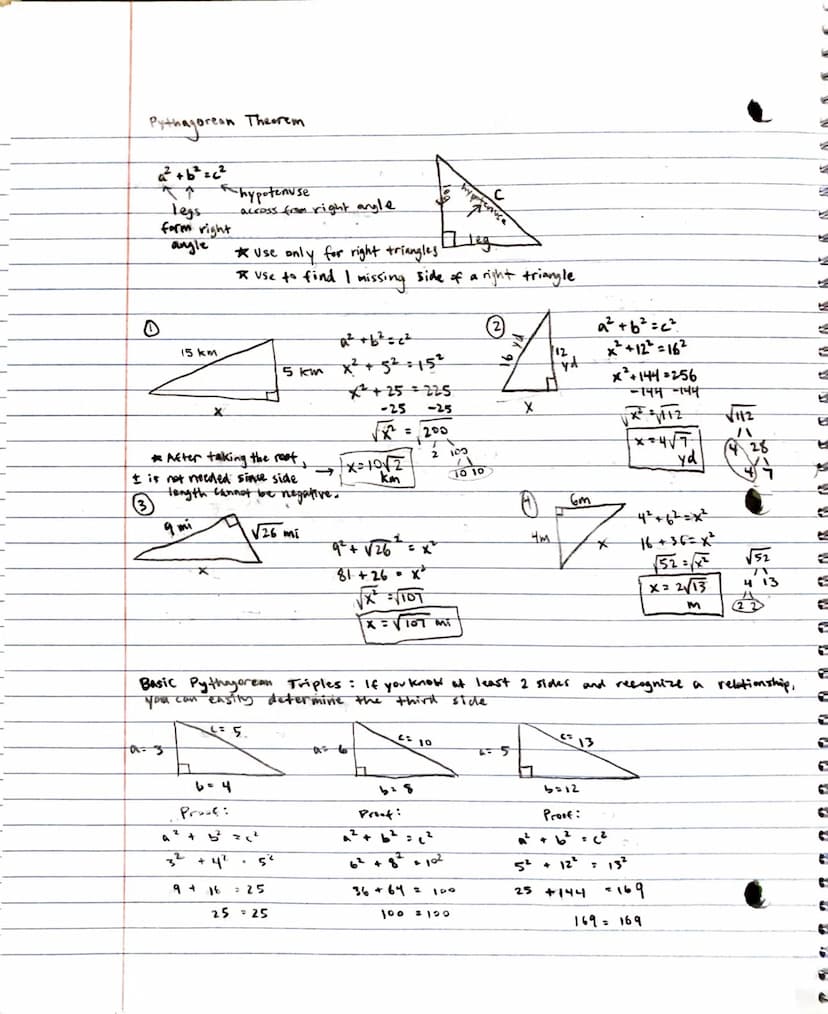 Pythagorean Theorem
a² + b² = c²
legs
form right
angle
hypotenuse
across from right angle
leg
hypotenuse
C
leg
* Use only for right triangles
* Use to find 1 missing side of a right triangle
①
15 km
5 km
x
a² + b² = c²
x² + 5² = 15²
x² + 25 = 225
-25 -25
√x² = √200
2 100
10 10
x = 10√2
km
* After taking the root,
± is not needed since side
length cannot be negative.
②
16 yd
12
yd
x
a² + b² = c²
x² + 12² = 16²
x² + 144 = 256
-144 -144
√x² = √112
x = 4√7
yd
√112
4 28
4 7
③
9 mi
√26 mi
x
9² + √26² = x²
81 + 26 = x²
√x² = √107
x = √107 mi
④
6m
4m
x
4² + 6² = x²
16 + 36 = x²
√52 = √x²
x = 2√13
m
√52
4 13
2 2
Basic Pythagorean Triples: If you know at least 2 sides and recognize a relationship,
you can easily determine the third side
a = 3
c = 5
b = 4
Proof:
a² + b² = c²
3² + 4² = 5²
9 + 16 = 25
25 = 25
a = 6
c = 10
b = 8
Proof:
a² + b² = c²
6² + 8² = 10²
36 + 64 = 100
100 = 100
a = 5
c = 13
b = 12
Proof:
a² + b² = c²
5² + 12² = 13²
25 + 144 = 169
169 = 169